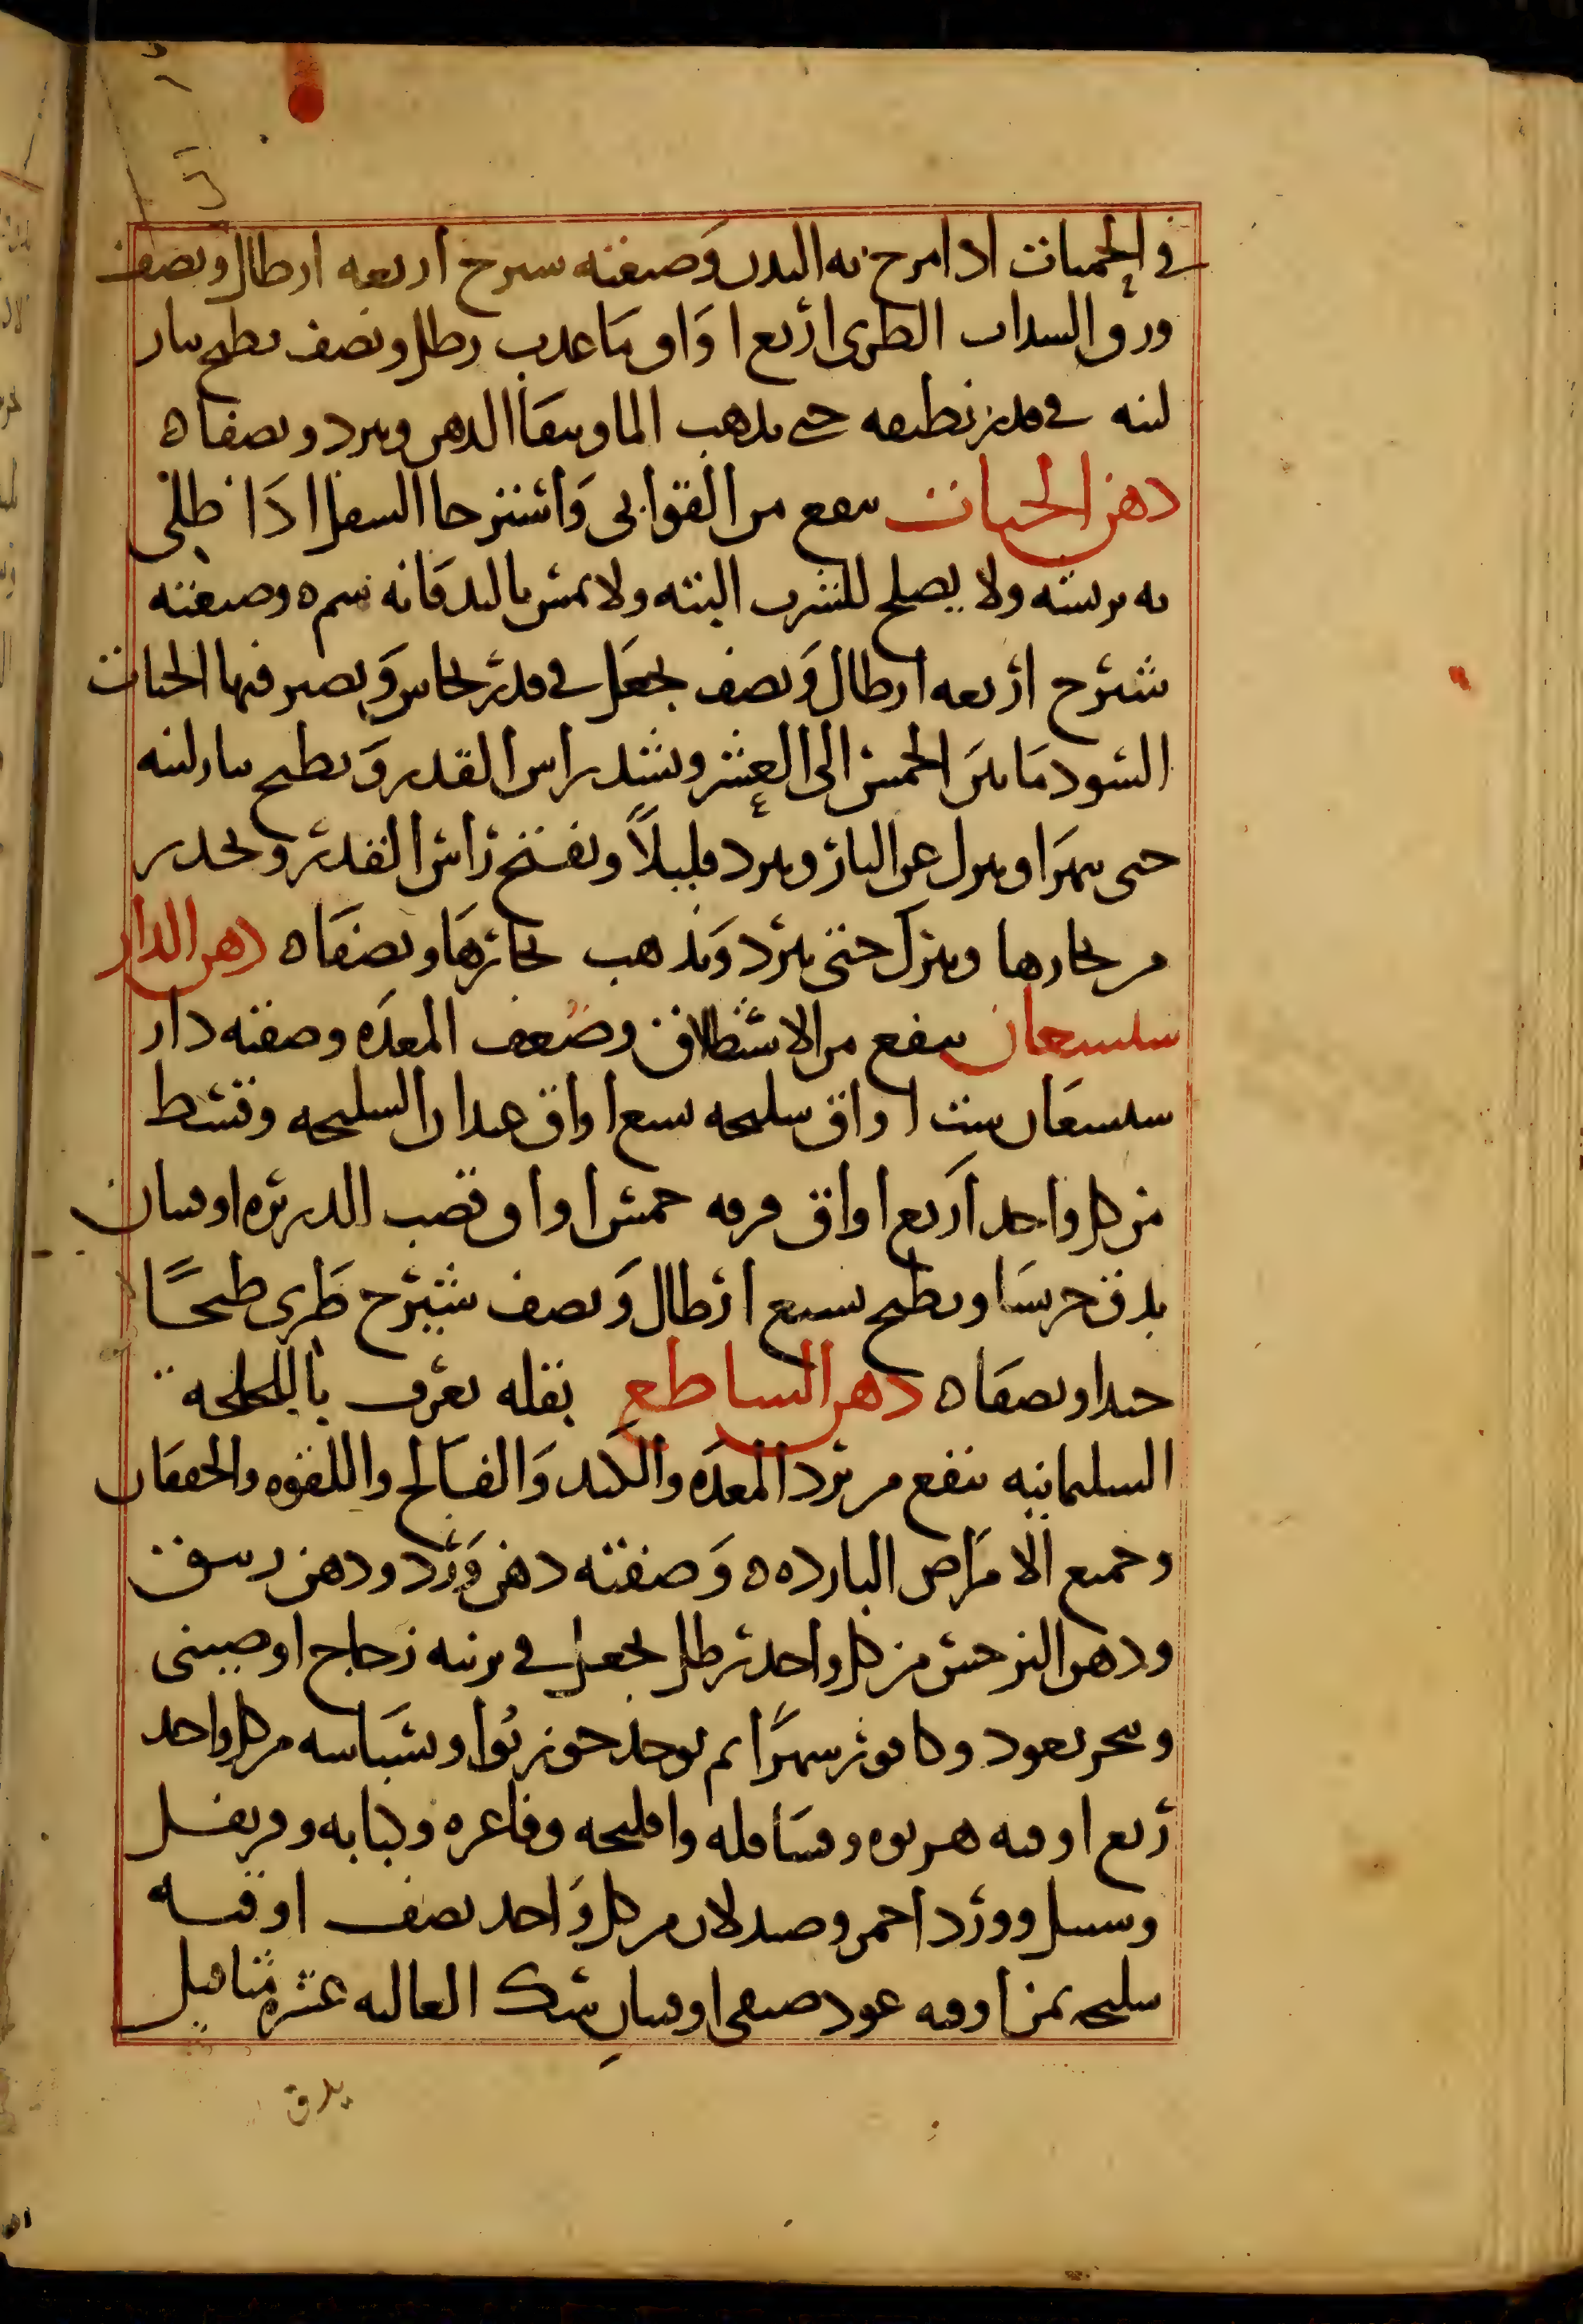 في الحميات اذا مرخ به البدن وصفته سيرج اربعه ارطال ونصف
ورق السداب الطري اربع اواق ما عذب رطل ونصف يطبخ بنار
لينه في قدر نظيفه حتى يذهب الما ويبقا الدهن ويبرد ويصفاه
دهن الحيات ينفع من القوابي واسترخا السفل اذا طلي
به بريشه ولا يصلح للشرب البته ولا يمس باليد فانه سم ه وصفته
شيرج اربعه ارطال ونصف يجعل في قدر نحاس ويصير فيها الحيات
السود ما بين الخمس الى العشر ويشد راس القدر ويطبخ بنار لينه
حتى يتهرا وينزل عن النار ويبرد قليلاً ويفتح راس القدر ويحذر
من بخارها ويترك حتى يبرد ويذهب بخارها ويصفاه دهن الدار
سيسعان ينفع من الاستطلاق وضعف المعده وصفته دار
سيسعان ست اواق سليخه سبع اواق عيدان السليخه وقسط
من كل واحد اربع اواق قرفه خمس اواق وقصب الدريره اوقيتان
يدق جريشا ويطبخ بسبع ارطال ونصف شيرج طري طبخًا
جيدا ويصفاه دهن الساطع نقله يعرف باللخلخه
السليمانيه ينفع من برد المعده والكبد والفالج واللقوه والخفقان
وجميع الامراض البارده ه وصفته دهن ورد ودهن زنبق
ودهن النرجس من كل واحد رطل يجعل في برنيه زجاج او صيني
ويبخر بعود وكافور شهرًا ثم يوخذ جوز بوا وبسباسه من كل واحد
ربع اوقيه هرنوه وقاقله وافليحه وفاغره وكبابه وقرنفل
وسنبل وورد احمر وصندلان من كل واحد نصف اوقيه
سليخه ثمن اوقيه عود صيفي اوقيتان سك الغاليه عشره مثاقيل
يدق